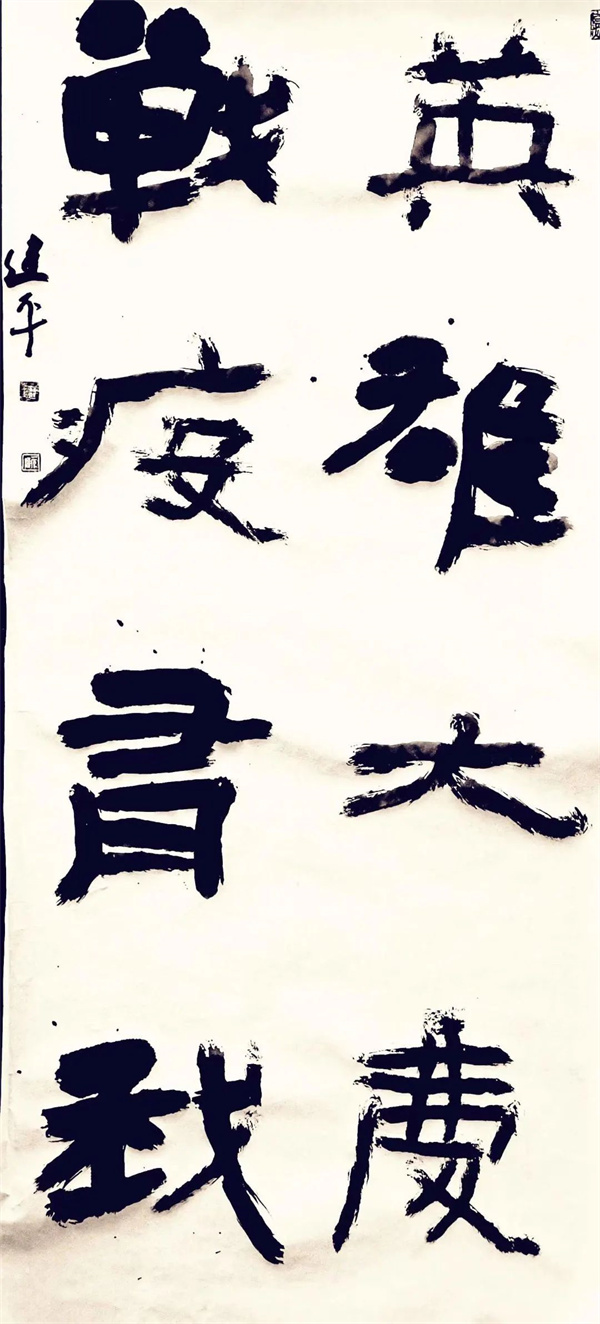 英雄大慶
戰疫有我
建平